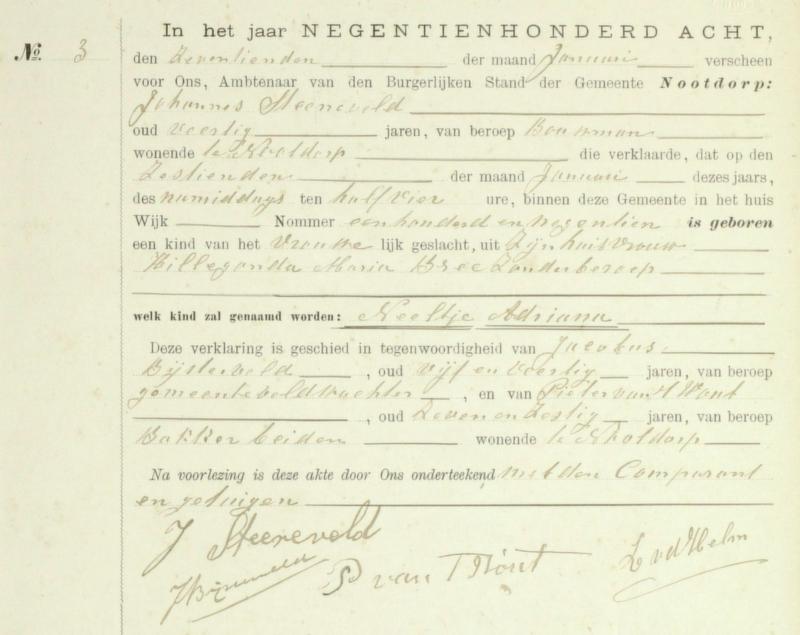 In het jaar NEGENTIENHONDERD ACHT,
No. 3
den Zeventienden der maand Januari verscheen
voor Ons, Ambtenaar van den Burgerlijken Stand der Gemeente Nootdorp:
Johannes Steeneveld
oud veertig jaren, van beroep Bouwman
wonende te Nootdorp die verklaarde, dat op den
Zestienden der maand Januari dezes jaars,
des namiddags ten half vier ure, binnen deze Gemeente in het huis
Wijk Nommer eenhonderd en negentien is geboren
een kind van het Vrouwe lijk geslacht, uit Zijn huisvrouw
Hillegonda Maria Bree Zonder beroep
welk kind zal genaamd worden: Neeltje Adriana
Deze verklaring is geschied in tegenwoordigheid van Jacobus
Bijsterveld, oud vijf en veertig jaren, van beroep
gemeenteveldwachter, en van Pieter van 't Wout
, oud Zeven en Zestig jaren, van beroep
Bakker beiden wonende te Nootdorp
Na voorlezing is deze akte door Ons onderteekend met den Comparant
en getuigen
J Steeneveld
P van 't Wout
vd Helm